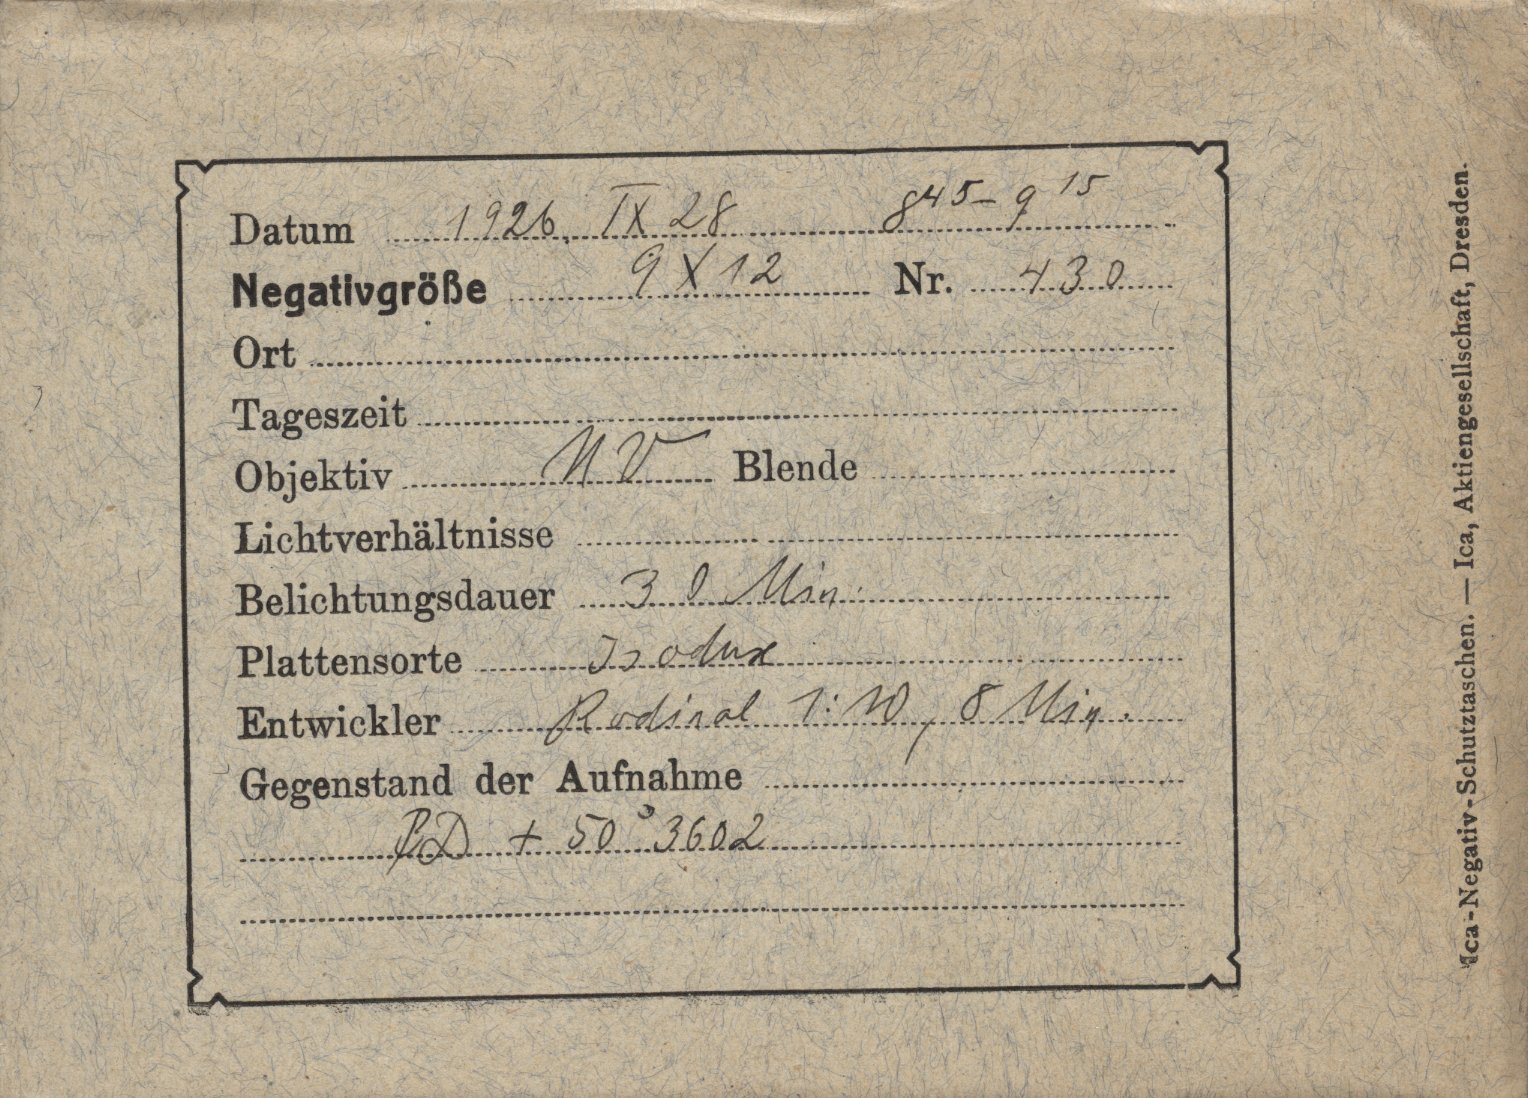 Datum 1926. IX 28 8⁴⁵ – 9¹⁵
Negativgröße 9 X 12 Nr. 430
Ort
Tageszeit
Objektiv UV Blende
Lichtverhältnisse
Belichtungsdauer 30 Min.
Plattensorte Isodux
Entwickler Rodinal 1:10, 8 Min.
Gegenstand der Aufnahme
BD + 50° 3602
Ica-Negativ-Schutztaschen. — Ica, Aktiengesellschaft, Dresden.